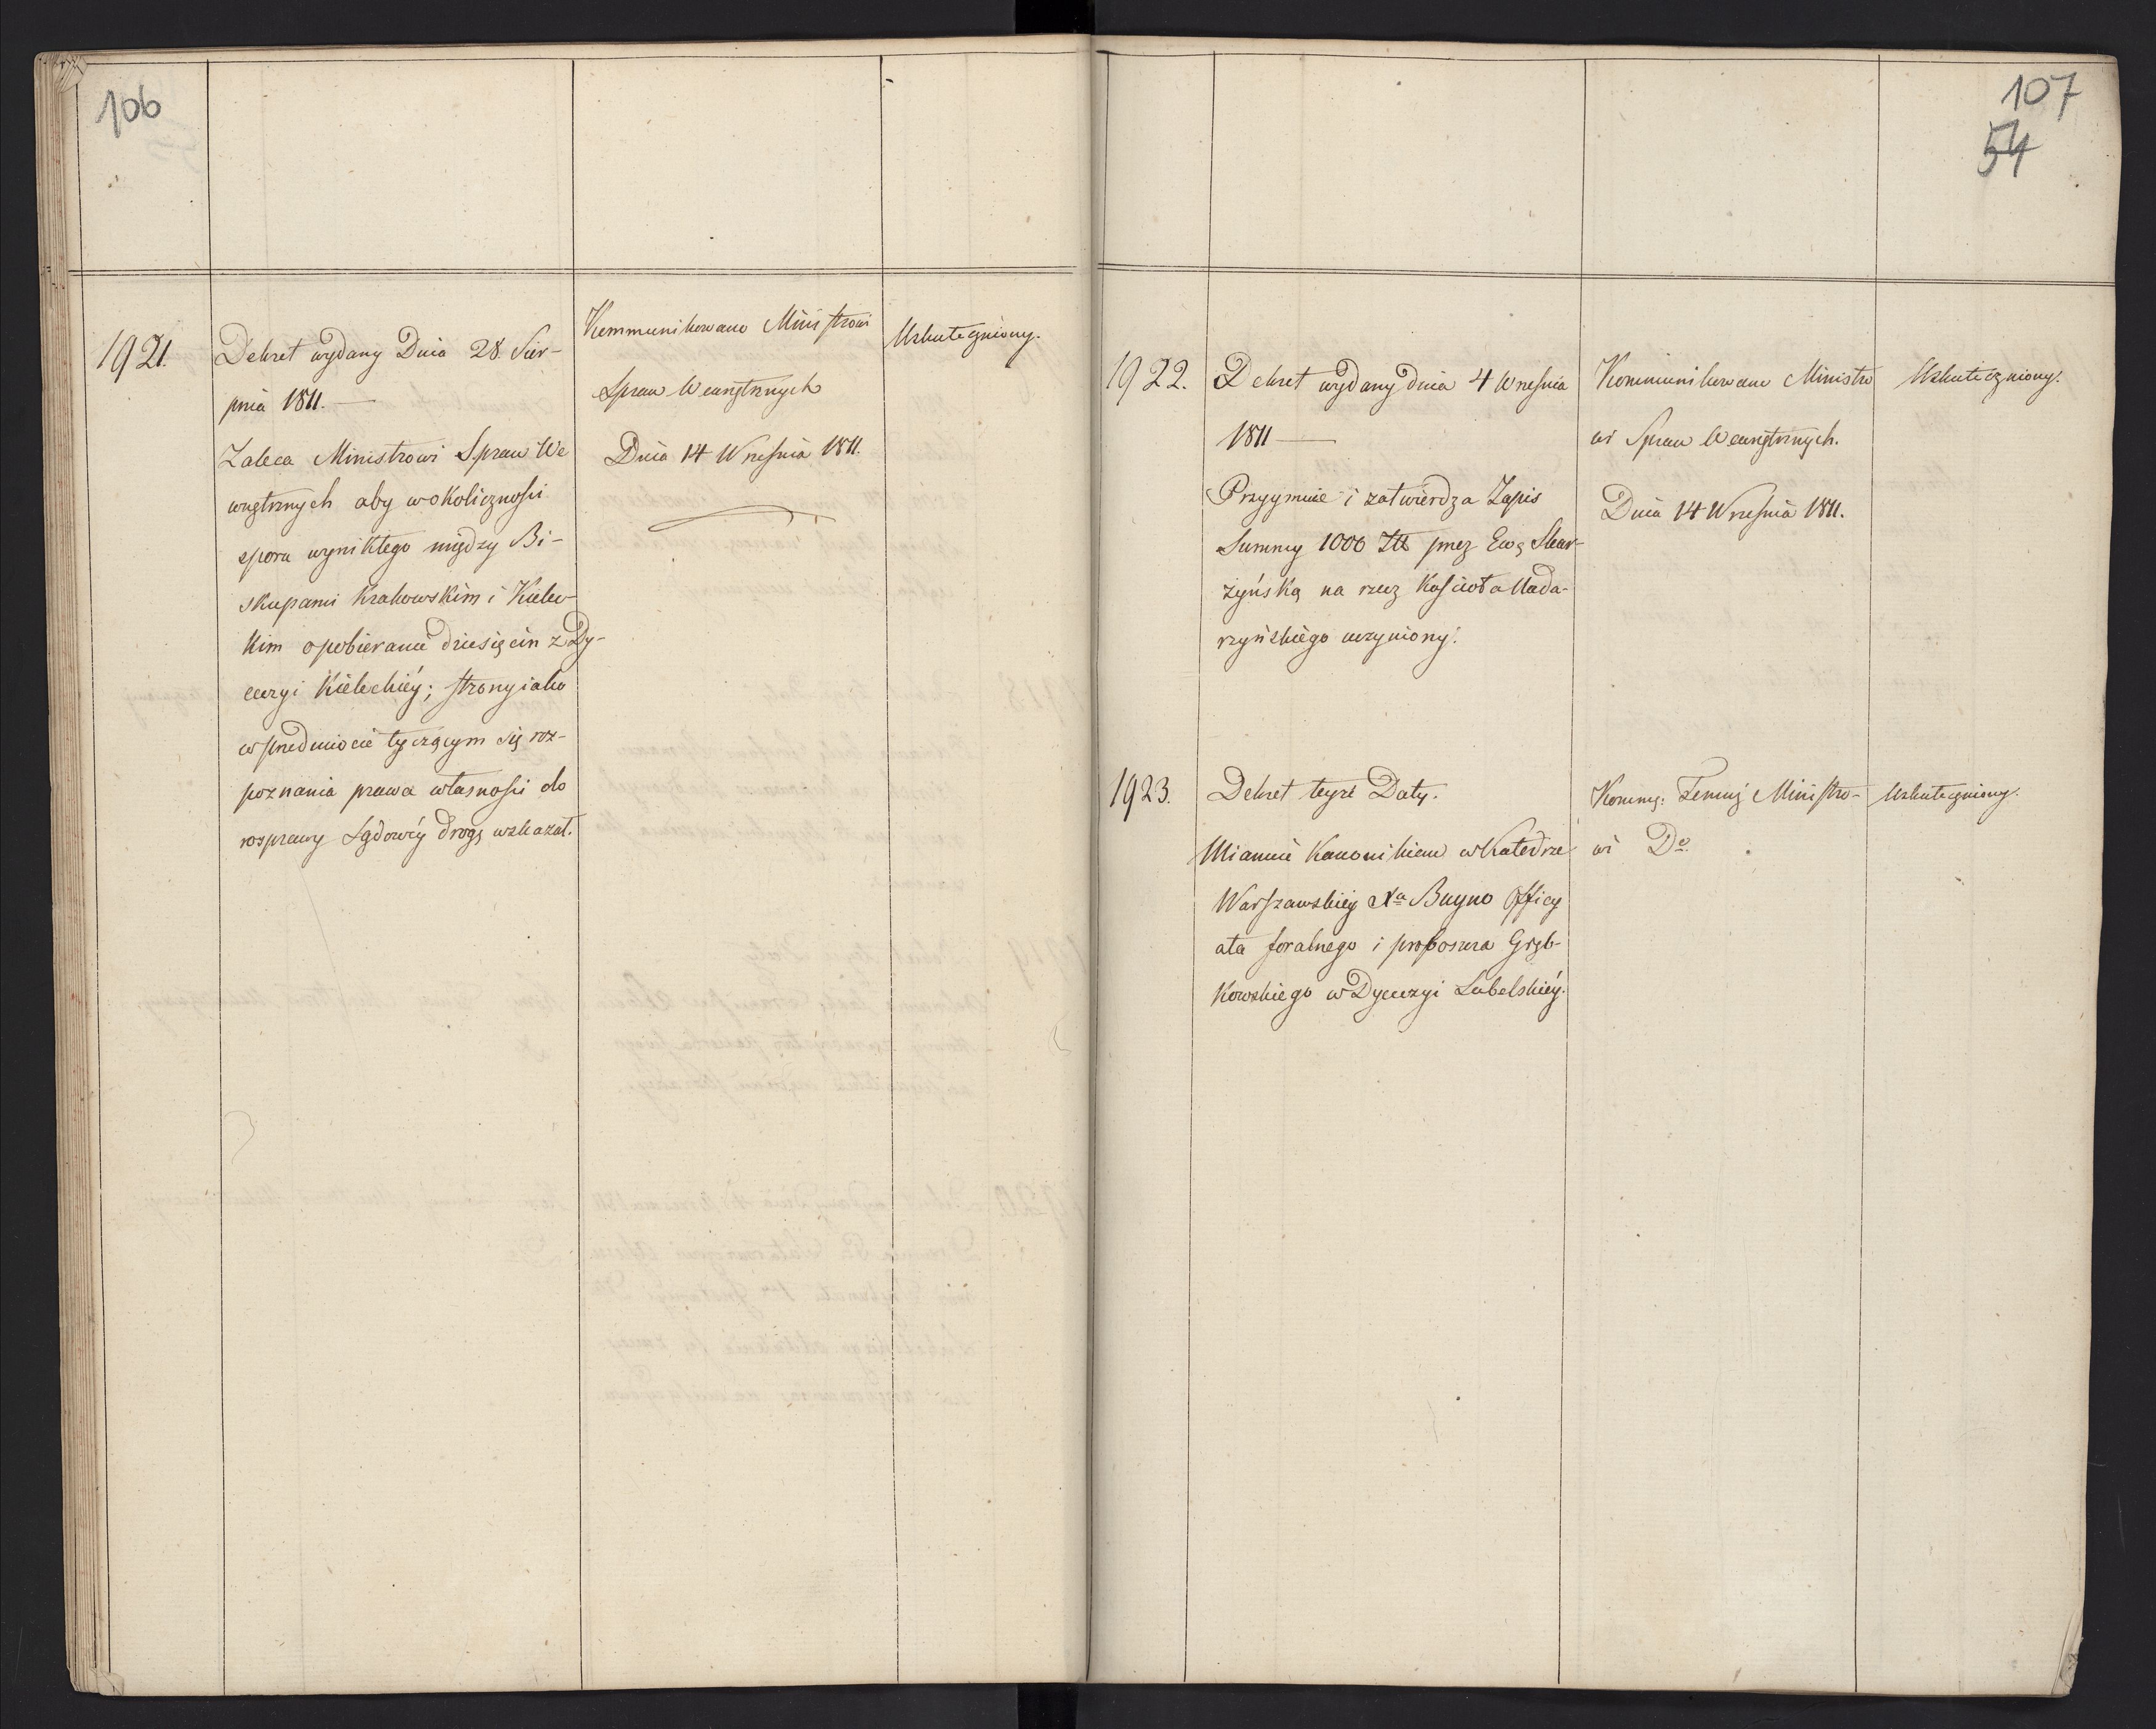 106
1921.
Dekret wydany Dnia 28. Sier-
pnia 1811.
Zaleca Ministrowi Spraw We
wnętrznych aby w okoliczności
sporu wynikłego między Bi-
skupami Krakowskim i Kielec-
kim o pobieranie dziesięcin z Dy-
ecezyi Kieleckiéy; strony iako
w przedmiocie tyczącym się roz-
poznania prawa własności do
rosprawy Sądowéy drogę wskazał.
Kommunikowano Ministrowi
Spraw Wewnętrznych
Dnia 14 Września 1811.
Uskuteczniony.
107
54
1922.
Dekret wydany dnia 4 Września
1811
Przyymuie i zatwierdza Zapis
Summy 1000 Złł przez Ewę Skar-
żyńską na rzecz Kościoła Nada-
rzyńskiego uczyniony.
Kommunikowano Ministro
wi Spraw Wewnętrznych.
Dnia 14 Września 1811.
Uskuteczniony.
1923.
Dekret teyże Daty.
Mianuie Kanonikiem w Katedrze
Warszawskiéy Xa Buyno Officy
ała foralnego i proboszcza Gręb-
kowskiego w Dyecezyi Lubelskiéy.
Kommu: Temuż Ministro-
wi Do
Uskuteczniony.